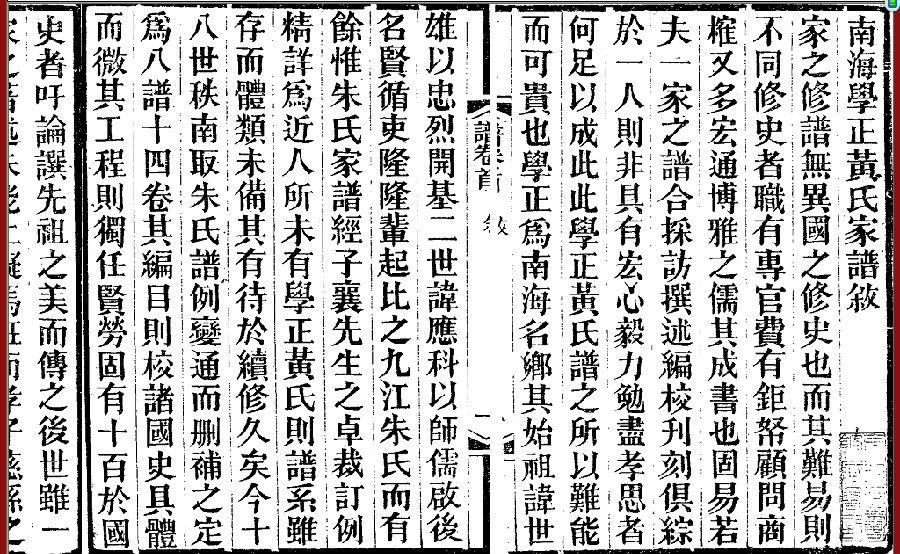 南海學正黃氏家譜敘
家之修譜無異國之修史也而其難易則
不同修史者職有專官費有鉅帑顧問商
榷又多宏通博雅之儒其成書也固易若
夫一家之譜合採訪撰述編校刊刻俱綜
於一人則非具有宏心毅力勉盡孝思者
何足以成此此學正黃氏譜之所以難能
而可貴也學正爲南海名鄉其始祖諱世
譜卷首 敘 一
雄以忠烈開基二世諱應科以師儒啟後
名賢循吏隆隆輩起比之九江朱氏而有
餘惟朱氏家譜經子襄先生之卓裁訂例
精詳爲近人所未有學正黃氏則譜系雖
存而體類未備其有待於續修久矣今十
八世秩南取朱氏譜例變通而刪補之定
爲八譜十四卷其編目則校諸國史具體
而微其工程則獨任賢勞固有十百於國
史者吁論譔先祖之美而傳之後世雖一